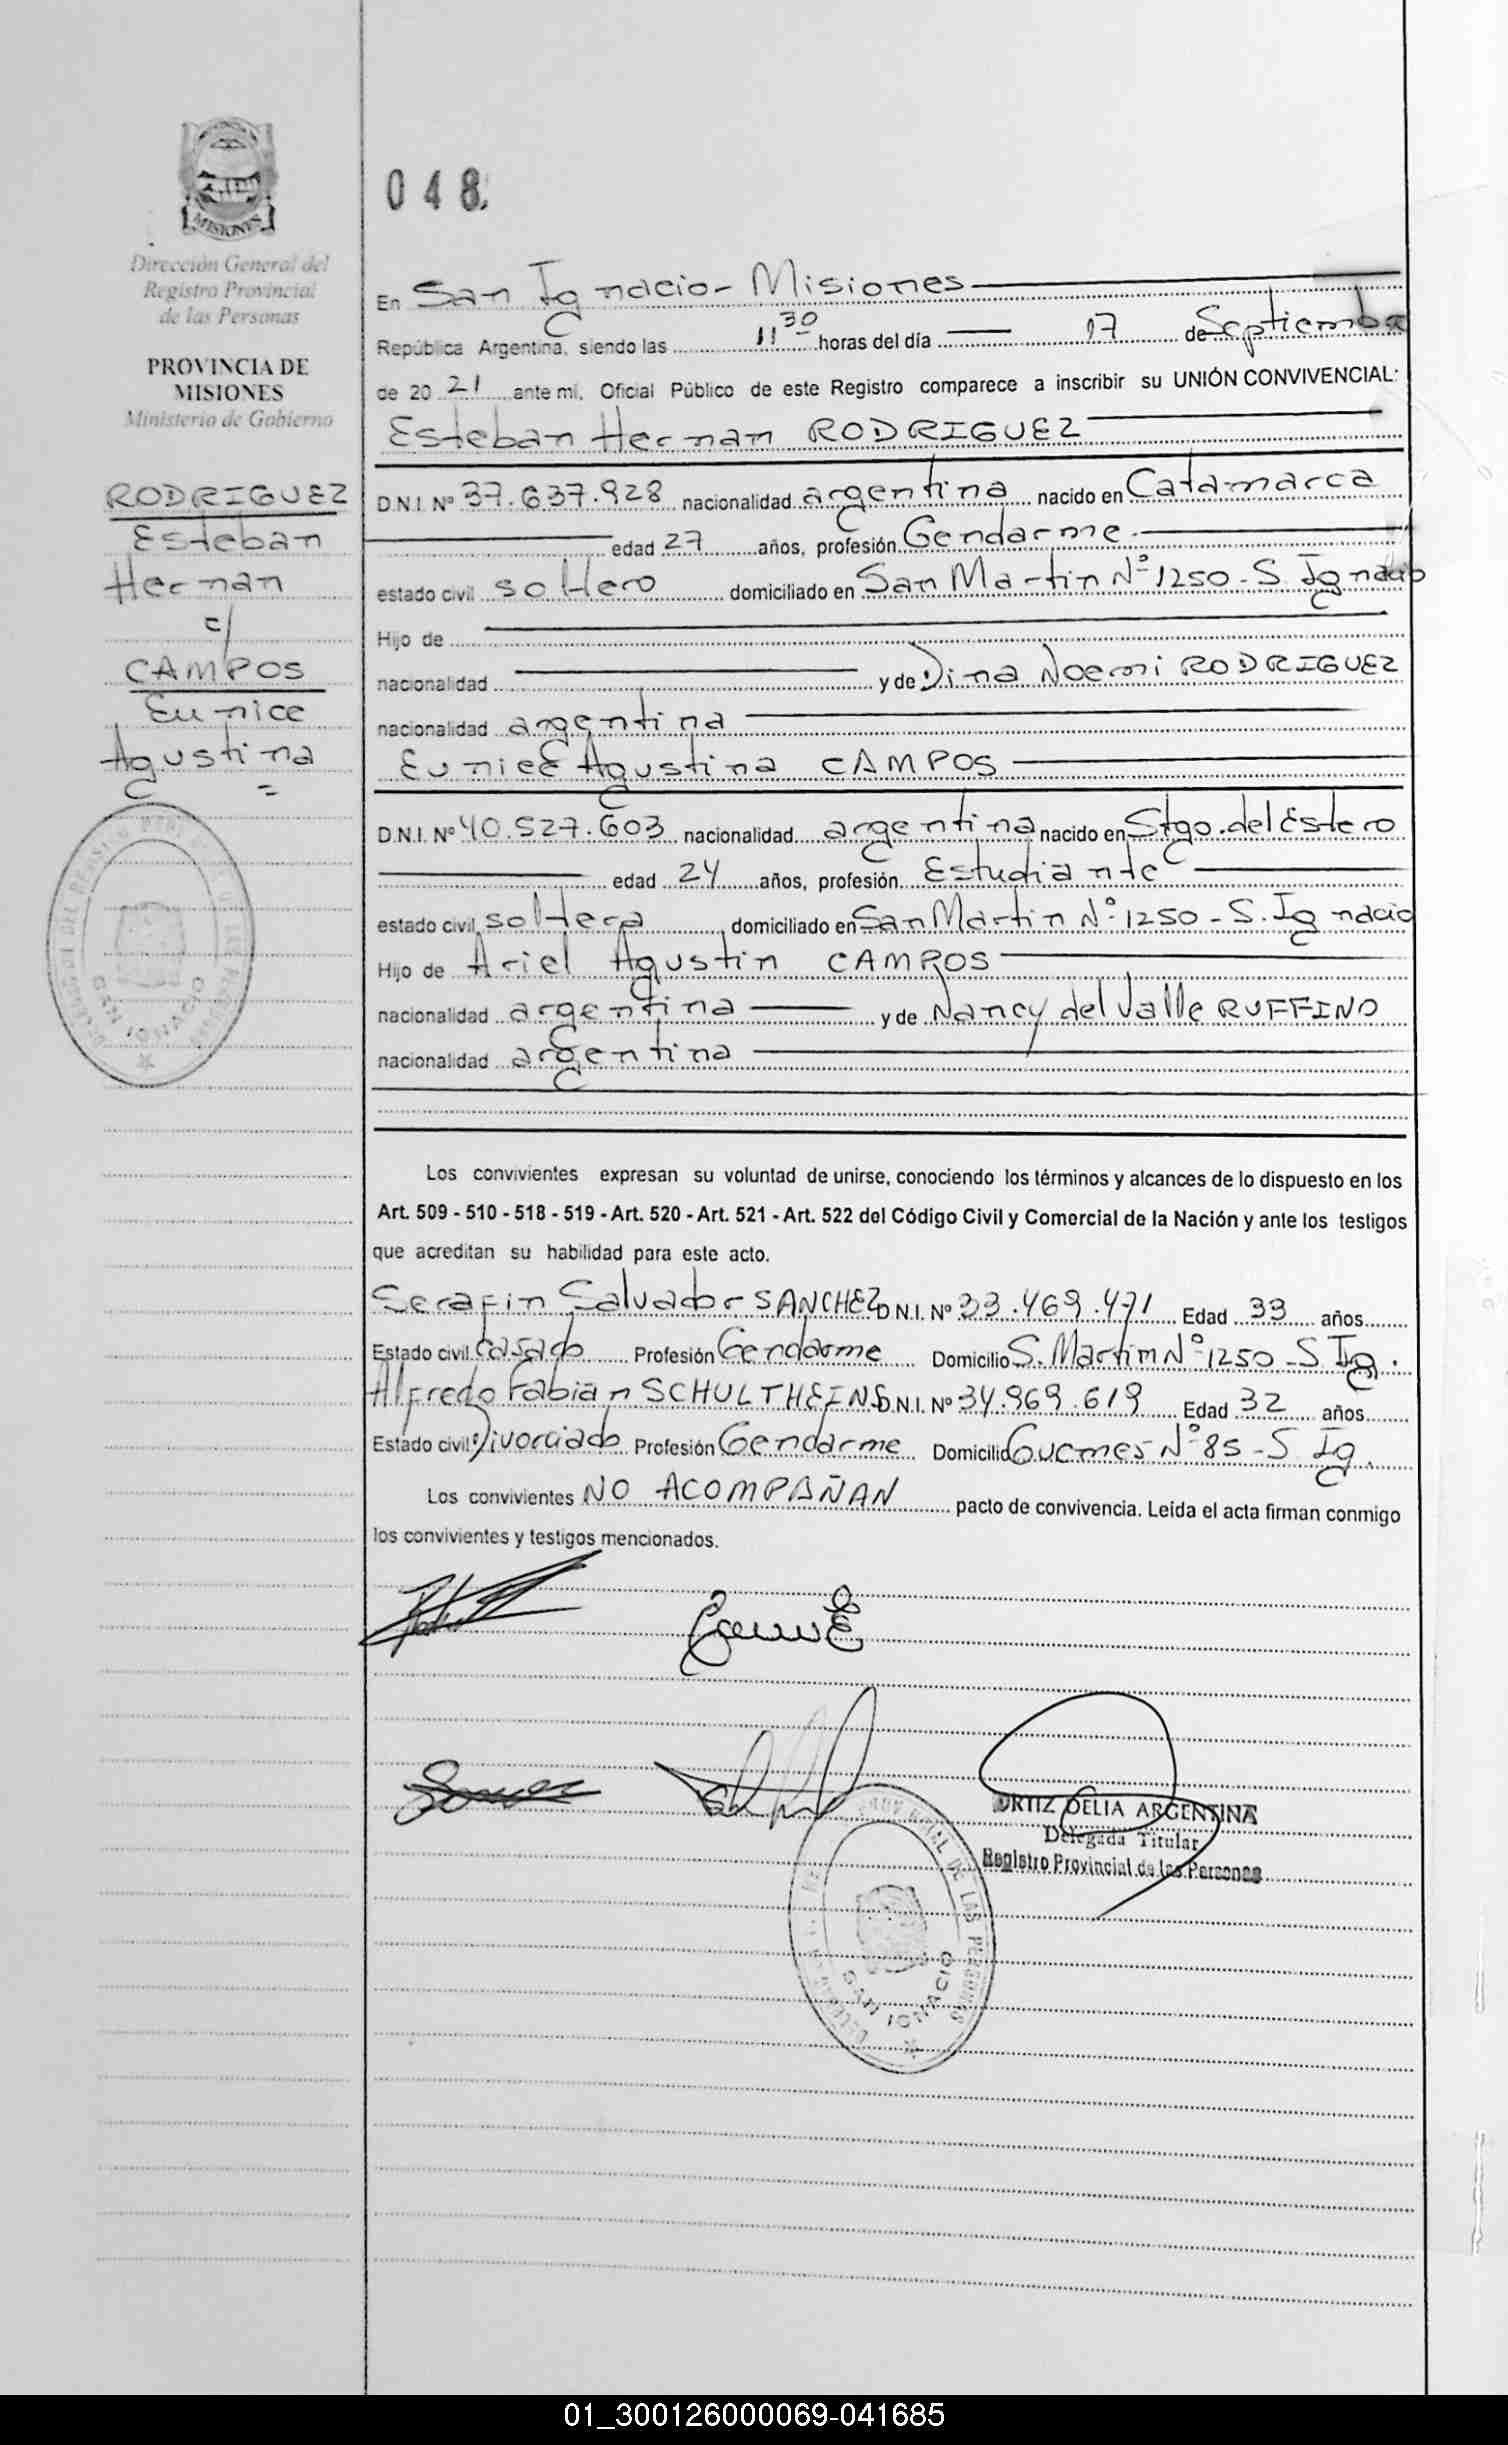 MISIONES
Dirección General del
Registro Provincial
de las Personas
PROVINCIA DE
MISIONES
Ministerio de Gobierno
RODRIGUEZ
Esteban
Hernan
c/
CAMPOS
Eunice
Agustina
SAN IGNACIO
048.
En San Ignacio - Misiones
República Argentina, siendo las 11 30 horas del día 17 de Septiembre
de 20 21 ante mi, Oficial Público de este Registro comparece a inscribir su UNIÓN CONVIVENCIAL:
Esteban Hernan RODRIGUEZ
D.N.I. Nº 37.637.928 nacionalidad argentina nacido en Catamarca
edad 27 años, profesión Gendarme.
estado civil soltero domiciliado en San Martin Nº 1250 - S. Ignacio
Hijo de
nacionalidad y de Dina Noemi RODRIGUEZ
nacionalidad argentina
Eunice Agustina CAMPOS
D.N.I. Nº 40.527.603 nacionalidad argentina nacido en Stgo. del Estero
edad 24 años, profesión Estudiante
estado civil soltera domiciliado en San Martin Nº 1250 - S. Ignacio
Hijo de Ariel Agustin CAMPOS
nacionalidad argentina y de Nancy del Valle RUFFINO
nacionalidad argentina
Los convivientes expresan su voluntad de unirse, conociendo los términos y alcances de lo dispuesto en los
Art. 509 - 510 - 518 - 519 - Art. 520 - Art. 521 - Art. 522 del Código Civil y Comercial de la Nación y ante los testigos
que acreditan su habilidad para este acto.
Serafin Salvador SANCHEZ D.N.I. Nº 33.469.471 Edad 33 años
Estado civil Casado Profesión Gendarme Domicilio S. Martin Nº 1250 - S Ig.
Alfredo Fabian SCHULTHEINS D.N.I. Nº 34.969.619 Edad 32 años
Estado civil Divorciado Profesión Gendarme Domicilio Guemes Nº 85 - S Ig.
Los convivientes NO ACOMPAÑAN pacto de convivencia. Leída el acta firman conmigo
los convivientes y testigos mencionados.
ORTIZ DELIA ARGENTINA
Delegada Titular
Registro Provincial de las Personas
DE LAS PERSONAS
SAN IGNACIO
01_300126000069-041685